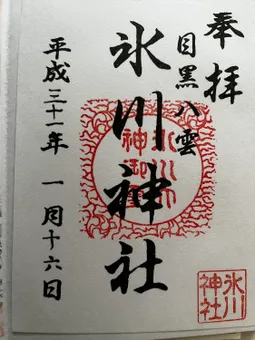 奉拝
目黒八雲
氷川神社
平成三十一年 一月十六日
氷川
神社